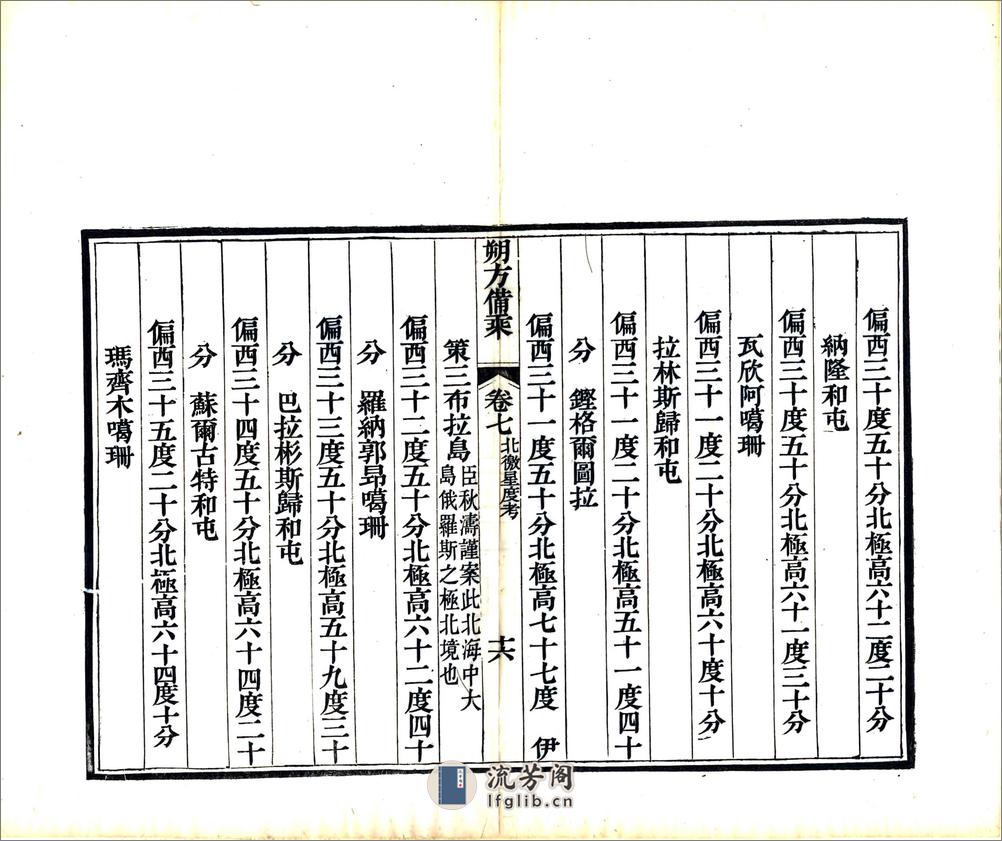 偏西三十度五十分北極高六十二度二十分
納隆和屯
偏西三十度五十分北極高六十一度三十分
瓦欣阿噶珊
偏西三十一度二十分北極高六十度十分
拉林斯歸和屯
偏西三十一度二十分北極高五十一度四十
分　鏗格爾圖拉
偏西三十一度五十分北極高七十七度　伊
朔方備乘
卷七
北徼星度考
十六
策三布拉島
臣秋濤謹案此北海中大
島俄羅斯之極北境也
偏西三十二度五十分北極高六十二度四十
分　羅納郭昂噶珊
偏西三十三度五十分北極高五十九度三十
分　巴拉彬斯歸和屯
偏西三十四度五十分北極高六十四度二十
分　蘇爾古特和屯
偏西三十五度二十分北極高六十四度十分
瑪齊木噶珊
流芳阁
lfglib.cn